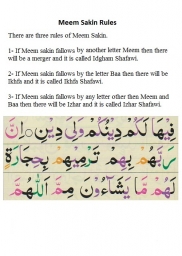 Meem Sakin Rules
There are three rules of Meem Sakin.
1- If Meem sakin fallows by another letter Meem then there
will be a merger and it is called Idgham Shafawi.
2- If Meem sakin fallows by the letter Baa then there will be
Ikhfa and it is called Ikhfa Shafawi.
3- If Meem sakin fallows by any letter other then Meem and
Baa then there will be Izhar and it is called Izhar Shafawi.
فِيْهَا لَكُمْ دِيْنُكُمْ وَلِيَ دِيْنِ اِنَّ
رَبَّهُمْ بِهِمْ تَرْمِيْهِمْ بِحِجَارَةٍ
لَهُمْ مَّا يَشَآءُوْنَ مِنَ اللّٰهُمَّ